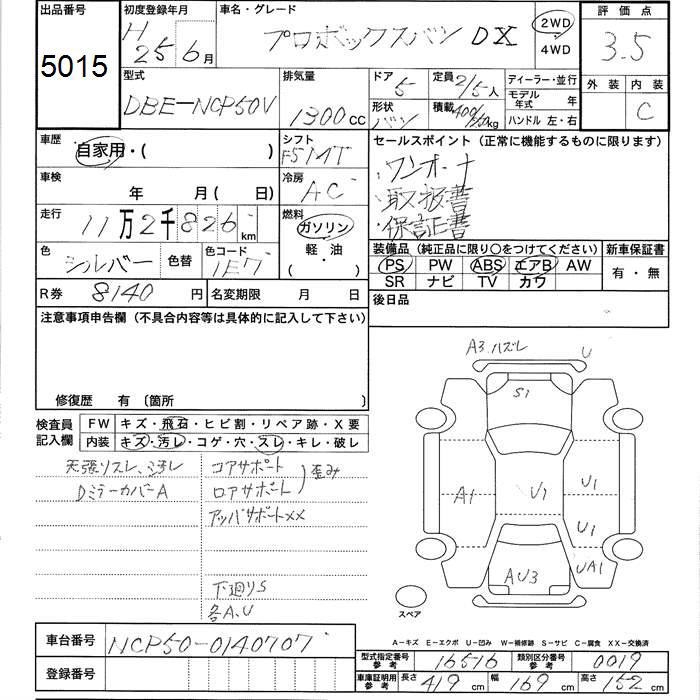 出品番号
5015
初度登録年月
H 25 6月
車名・グレード
プロボックスバン DX
2WD
4WD
評価点
3.5
外装 内装
C
型式
DBE-NCP50V
排気量
1300cc
ドア 5
定員 2/5人
形状 バン
積載 kg
ディーラー・並行
モデル年式 年
ハンドル 左・右
車歴
自家用・( )
シフト
F5MT
車検
年 月(日)
冷房
AC
走行
11万2千826km
燃料
ガソリン
軽・油
( ・ )
色
シルバー
色替
色コード
1E7
R券 8140円
名変期限 月 日
セールスポイント(正常に機能するものに限ります)
・ワンオーナ
・取扱書
・保証書
装備品(純正品に限り○をつけてください)
PS PW ABS エアB AW
SR ナビ TV カワ
新車保証書
有・無
後日品
注意事項申告欄(不具合内容等は具体的に記入して下さい)
修復歴 有〔箇所
検査員
記入欄
FW キズ・飛石・ヒビ割・リペア跡・X要
内装 キズ・汚レ・コゲ・穴・スレ・キレ・破レ
天張リスレ、汚レ
DミラーカバーA
コアサポート
ロアサポート
歪み
アッパサポートXX
下廻りS
各A、U
A3ハズレ
U
S1
A1
U1
U1
U1
UA1
AU3
スペア
A-キズ E-エクボ U-凹み W-補修跡 S-サビ C-腐食 XX-交換済
車台番号
NCP50-0140707
登録番号
型式指定番号
参考
16516
類別区分番号
参考
0019
車庫証明用
参考
長さ 419cm
幅 169cm
高さ 152cm